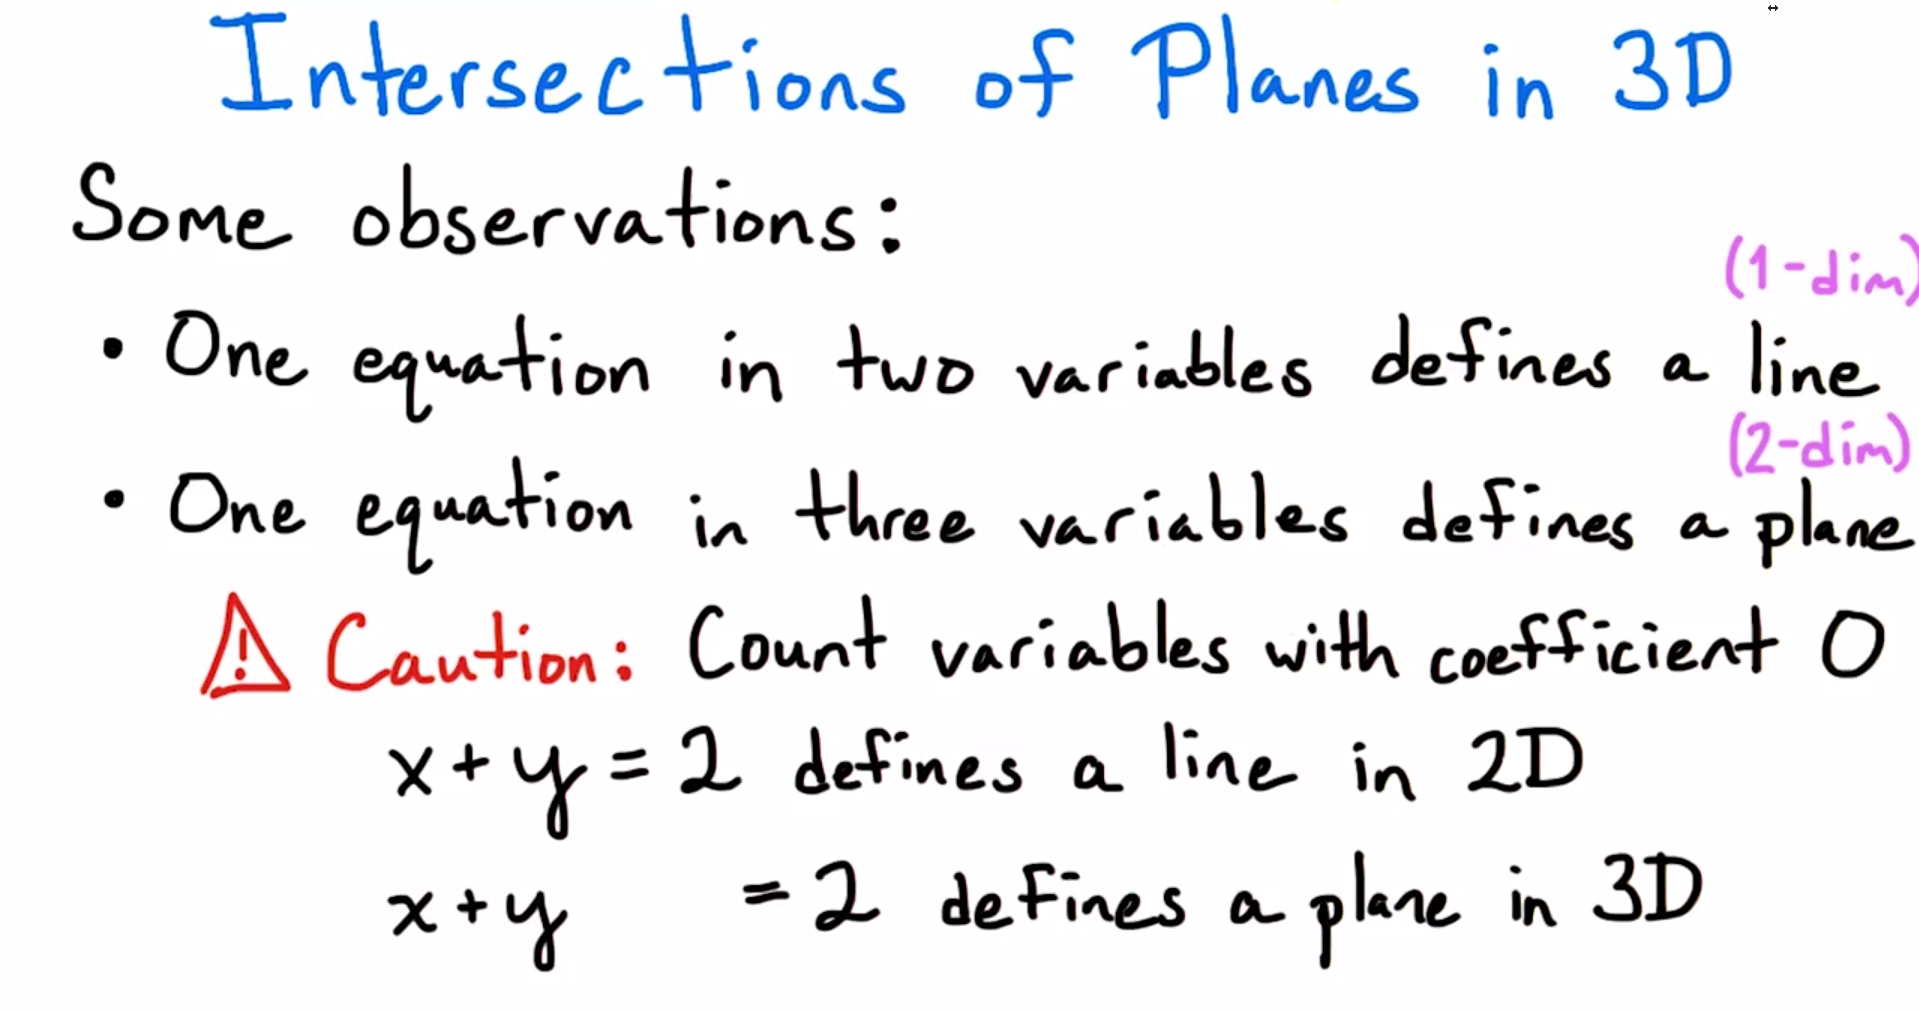 Intersections of Planes in 3D
Some observations:
(1-dim)
• One equation in two variables defines a line
(2-dim)
• One equation in three variables defines a plane
⚠ Caution: Count variables with coefficient 0
x + y = 2 defines a line in 2D
x + y = 2 defines a plane in 3D